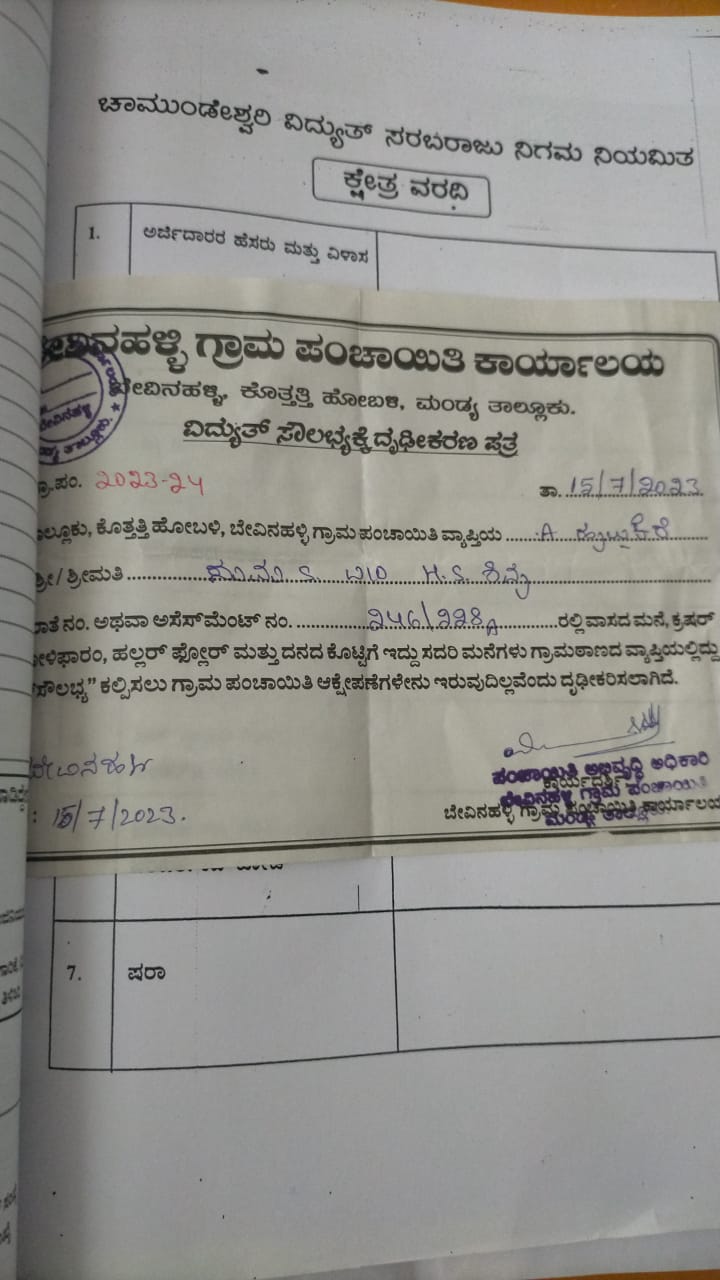 ಚಾಮುಂಡೇಶ್ವರಿ ವಿದ್ಯುತ್ ಸರಬರಾಜು ನಿಗಮ ನಿಯಮಿತ
ಕ್ಷೇತ್ರ ವರದಿ
1. ಅರ್ಜಿದಾರರ ಹೆಸರು ಮತ್ತು ವಿಳಾಸ
ಬೇವಿನಹಳ್ಳಿ ಗ್ರಾಮ ಪಂಚಾಯಿತಿ ಕಾರ್ಯಾಲಯ
ಬೇವಿನಹಳ್ಳಿ, ಕೊತ್ತತ್ತಿ ಹೋಬಳಿ, ಮಂಡ್ಯ ತಾಲ್ಲೂಕು.
ವಿದ್ಯುತ್ ಸೌಲಭ್ಯಕ್ಕೆ ದೃಢೀಕರಣ ಪತ್ರ
ಗ್ರಾ.ಪಂ. 2023-24 ತಾ. 15/7/2023
ಕೊತ್ತತ್ತಿ ಹೋಬಳಿ, ಬೇವಿನಹಳ್ಳಿ ಗ್ರಾಮ ಪಂಚಾಯಿತಿ ವ್ಯಾಪ್ತಿಯ ..... A.
ಶ್ರೀ/ ಶ್ರೀಮತಿ ..... S. W/O H.S.
ಖಾತೆ ನಂ. ಅಥವಾ ಅಸೆಸ್‌ಮೆಂಟ್ ನಂ. ..... 246/228A ..... ರಲ್ಲಿ ವಾಸದ ಮನೆ, ಕ್ರಷರ್
ಕೋಳಿಫಾರಂ, ಹಲ್ಲರ್ ಫ್ಲೋರ್ ಮತ್ತು ದನದ ಕೊಟ್ಟಿಗೆ ಇದ್ದು ಸದರಿ ಮನೆಗಳು ಗ್ರಾಮಠಾಣದ ವ್ಯಾಪ್ತಿಯಲ್ಲಿದ್ದು
ಸೌಲಭ್ಯ" ಕಲ್ಪಿಸಲು ಗ್ರಾಮ ಪಂಚಾಯಿತಿ ಆಕ್ಷೇಪಣೆಗಳೇನು ಇರುವುದಿಲ್ಲವೆಂದು ದೃಢೀಕರಿಸಲಾಗಿದೆ.
ಬೇವಿನಹಳ್ಳಿ
: 15/7/2023.
ಪಂಚಾಯಿತಿ ಅಭಿವೃದ್ಧಿ ಅಧಿಕಾರಿ
ಕಾರ್ಯದರ್ಶಿ
ಬೇವಿನಹಳ್ಳಿ ಗ್ರಾಮ ಪಂಚಾಯಿತಿ
ಬೇವಿನಹಳ್ಳಿ ಗ್ರಾಮ ಪಂಚಾಯಿತಿ ಕಾರ್ಯಾಲಯ
7. ಷರಾ